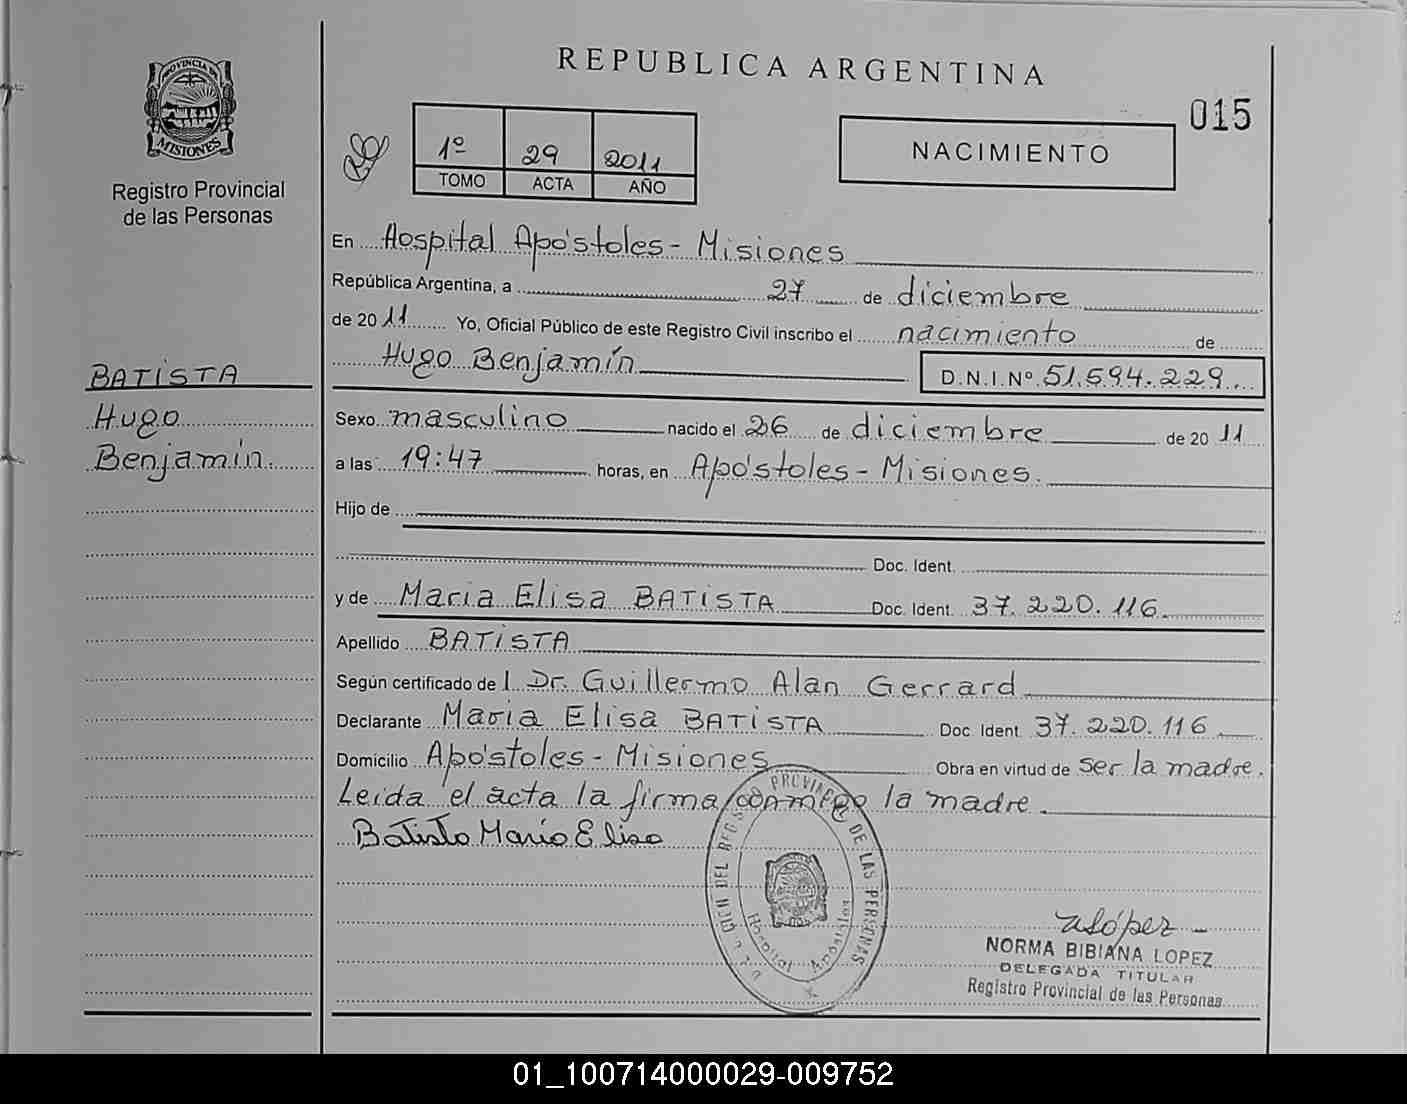 REPUBLICA ARGENTINA
015
PROVINCIA DE
MISIONES
Registro Provincial
de las Personas
1º 29 2011
TOMO ACTA AÑO
NACIMIENTO
En Hospital Apóstoles - Misiones
República Argentina, a 27 de diciembre
de 2011 Yo, Oficial Público de este Registro Civil inscribo el nacimiento de
Hugo Benjamín
D.N.I.Nº 51.594.229
BATISTA
Hugo
Benjamín.
Sexo masculino nacido el 26 de diciembre de 2011
a las 19:47 horas, en Apóstoles - Misiones.
Hijo de
Doc. Ident.
y de Maria Elisa BATISTA Doc. Ident. 37.220.116
Apellido BATISTA
Según certificado de l Dr. Guillermo Alan Gerrard
Declarante Maria Elisa BATISTA Doc Ident. 37.220.116
Domicilio Apóstoles - Misiones Obra en virtud de ser la madre.
Leída el acta la firma conmigo la madre
Batista María Elisa
PROVINCIAL DE LAS PERSONAS
Hospital Apóstoles
NORMA BIBIANA LOPEZ
DELEGADA TITULAR
Registro Provincial de las Personas
01_100714000029-009752